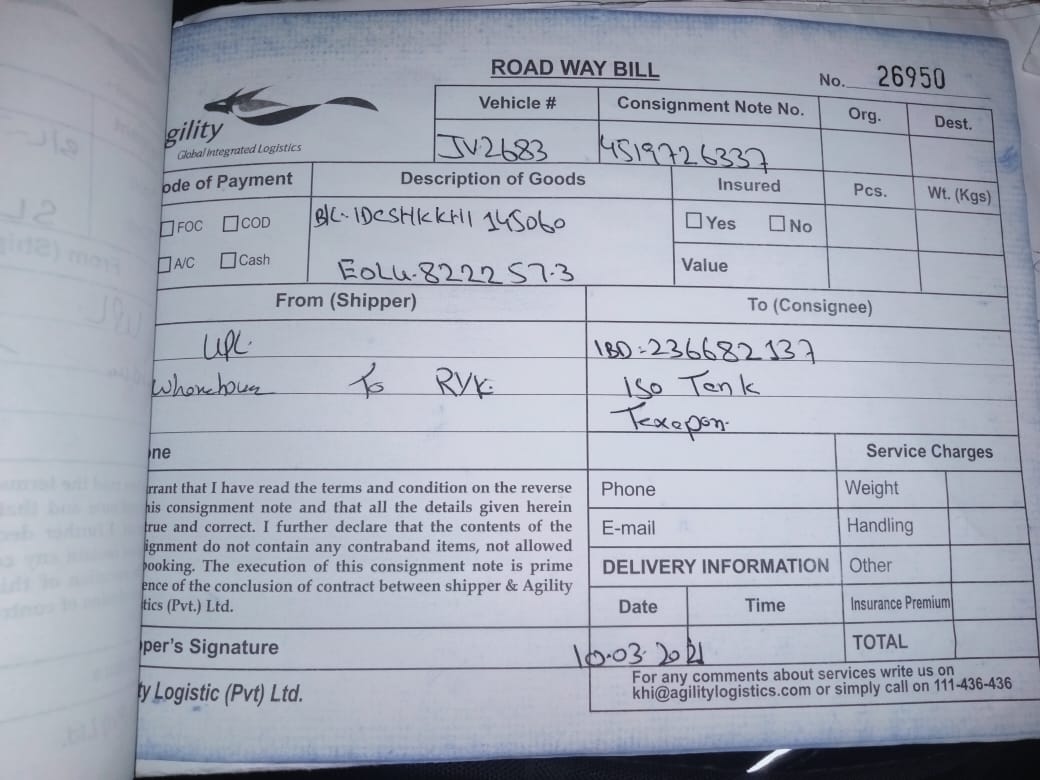 ROAD WAY BILL
No. 26950
gility
Global Integrated Logistics
Vehicle #
Consignment Note No.
Org.
Dest.
JV2683
4519726337
ode of Payment
Description of Goods
Insured
Pcs.
Wt. (Kgs)
FOC
COD
B/L-IDCSHKKHI 145060
Yes
No
A/C
Cash
EOLU-822257-3
Value
From (Shipper)
To (Consignee)
UPL
IBD-236682137
To RVK
ISO Tank
Texapon
ne
Service Charges
rrant that I have read the terms and condition on the reverse
his consignment note and that all the details given herein
true and correct. I further declare that the contents of the
ignment do not contain any contraband items, not allowed
booking. The execution of this consignment note is prime
ence of the conclusion of contract between shipper & Agility
tics (Pvt.) Ltd.
Phone
Weight
E-mail
Handling
DELIVERY INFORMATION
Other
Date
Time
Insurance Premium
per's Signature
10.03.2021
TOTAL
y Logistic (Pvt) Ltd.
For any comments about services write us on
khi@agilitylogistics.com or simply call on 111-436-436